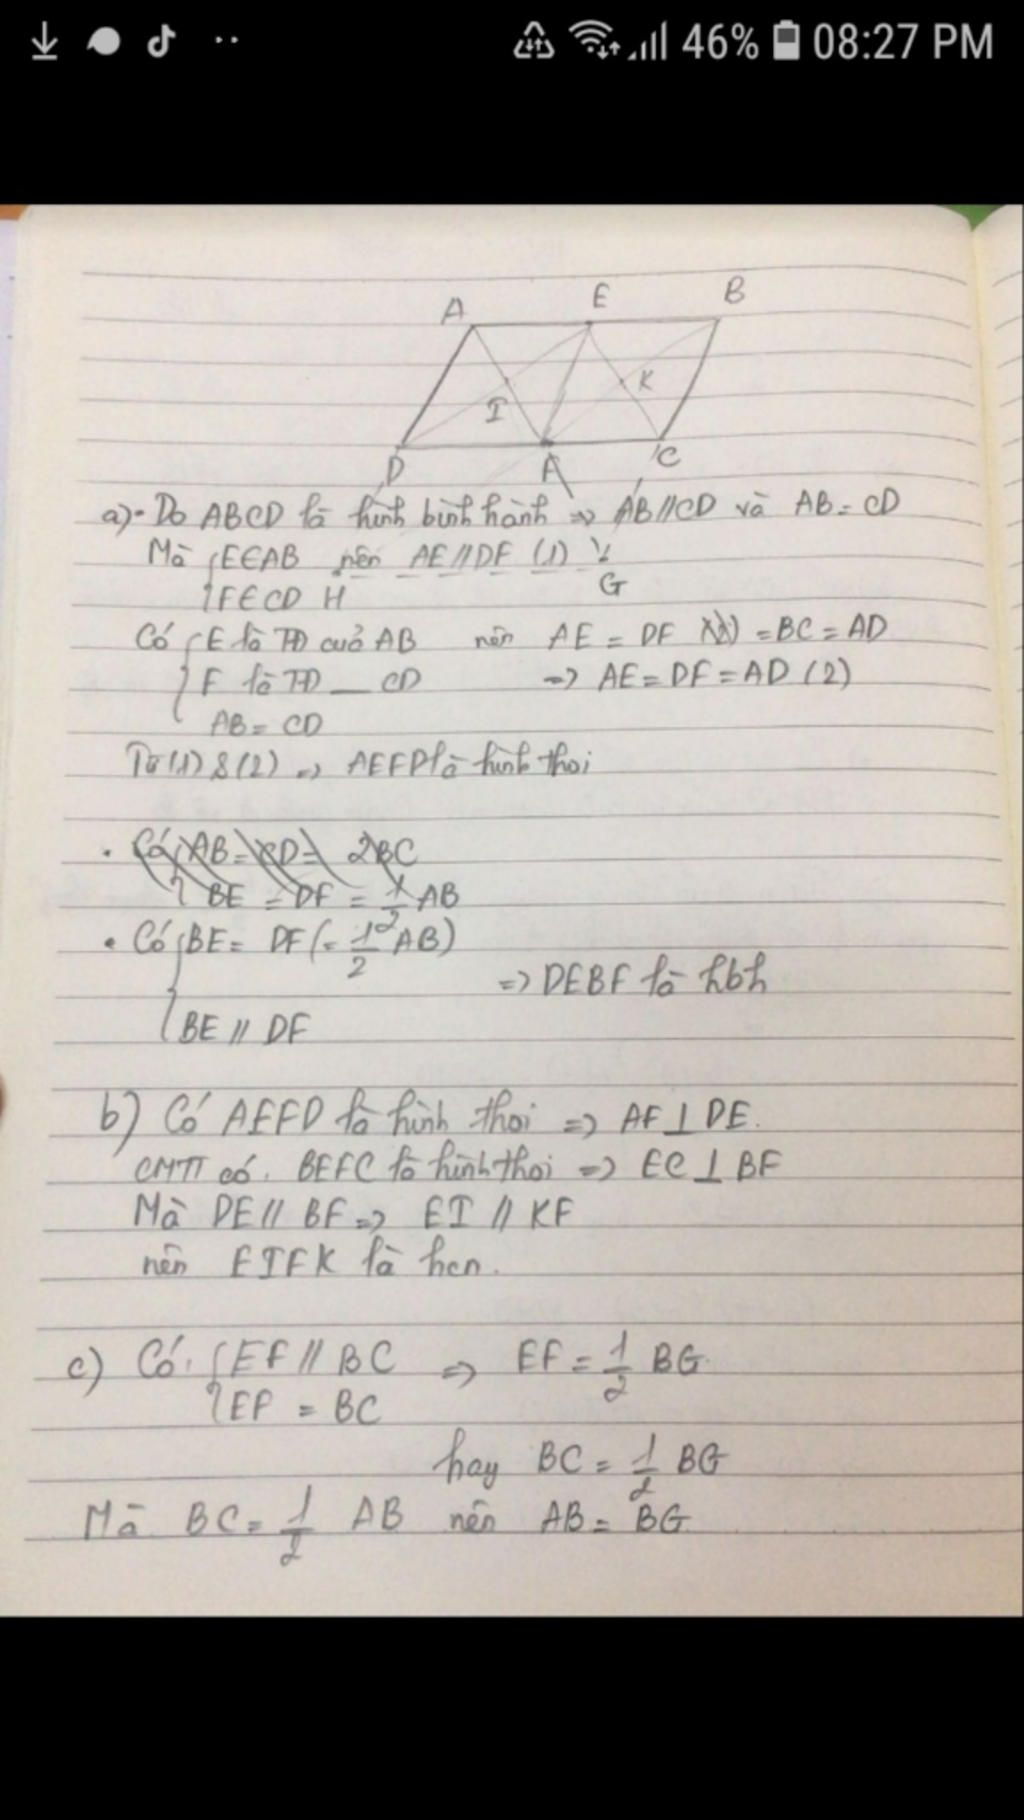 46% 08:27 PM
A E B
I K
D A C
a)- Do ABCD là hình bình hành => AB//CD và AB = CD
Mà {E∈AB nên AE//DF (1)
G
{F∈CD H
Có {E là TĐ cuả AB nên AE = DF = BC = AD
{F là TĐ __ CD => AE = DF = AD (2)
AB = CD
Từ (1) & (2) => AEFD là hình thoi
• Có {AB = CD = 2BC
{BE = DF = 1/2 AB
• Có {BE = DF (= 1/2 AB)
=> DEBF là hbh
{BE // DF
b) Có AEFD là hình thoi => AF ⊥ DE.
CMTT có. BEFC là hình thoi => EC ⊥ BF
Mà DE // BF => EI // KF
nên EIFK là hcn.
c) Có. {EF // BC => EF = 1/2 BG.
{EF = BC
hay BC = 1/2 BG
Mà BC = 1/2 AB nên AB = BG